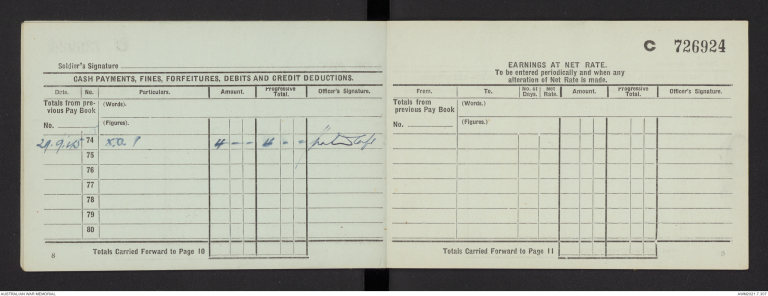 Soldier's Signature
CASH PAYMENTS, FINES, FORFEITURES, DEBITS AND CREDIT DEDUCTIONS.
Date. No. Particulars. Amount. Progressive Total. Officer's Signature.
Totals from pre-
vious Pay Book
No.
(Words).
(Figures).
29.9.45 74 4 - - 4 - -
75
76
77
78
79
80
Totals Carried Forward to Page 10
8
C 726924
EARNINGS AT NET RATE.
To be entered periodically and when any
alteration of Net Rate is made.
From. To. No. of Days. Net Rate. Amount. Progressive Total. Officer's Signature.
Totals from
previous Pay Book
No.
(Words.)
(Figures.)
Totals Carried Forward to Page 11
AUSTRALIAN WAR MEMORIAL